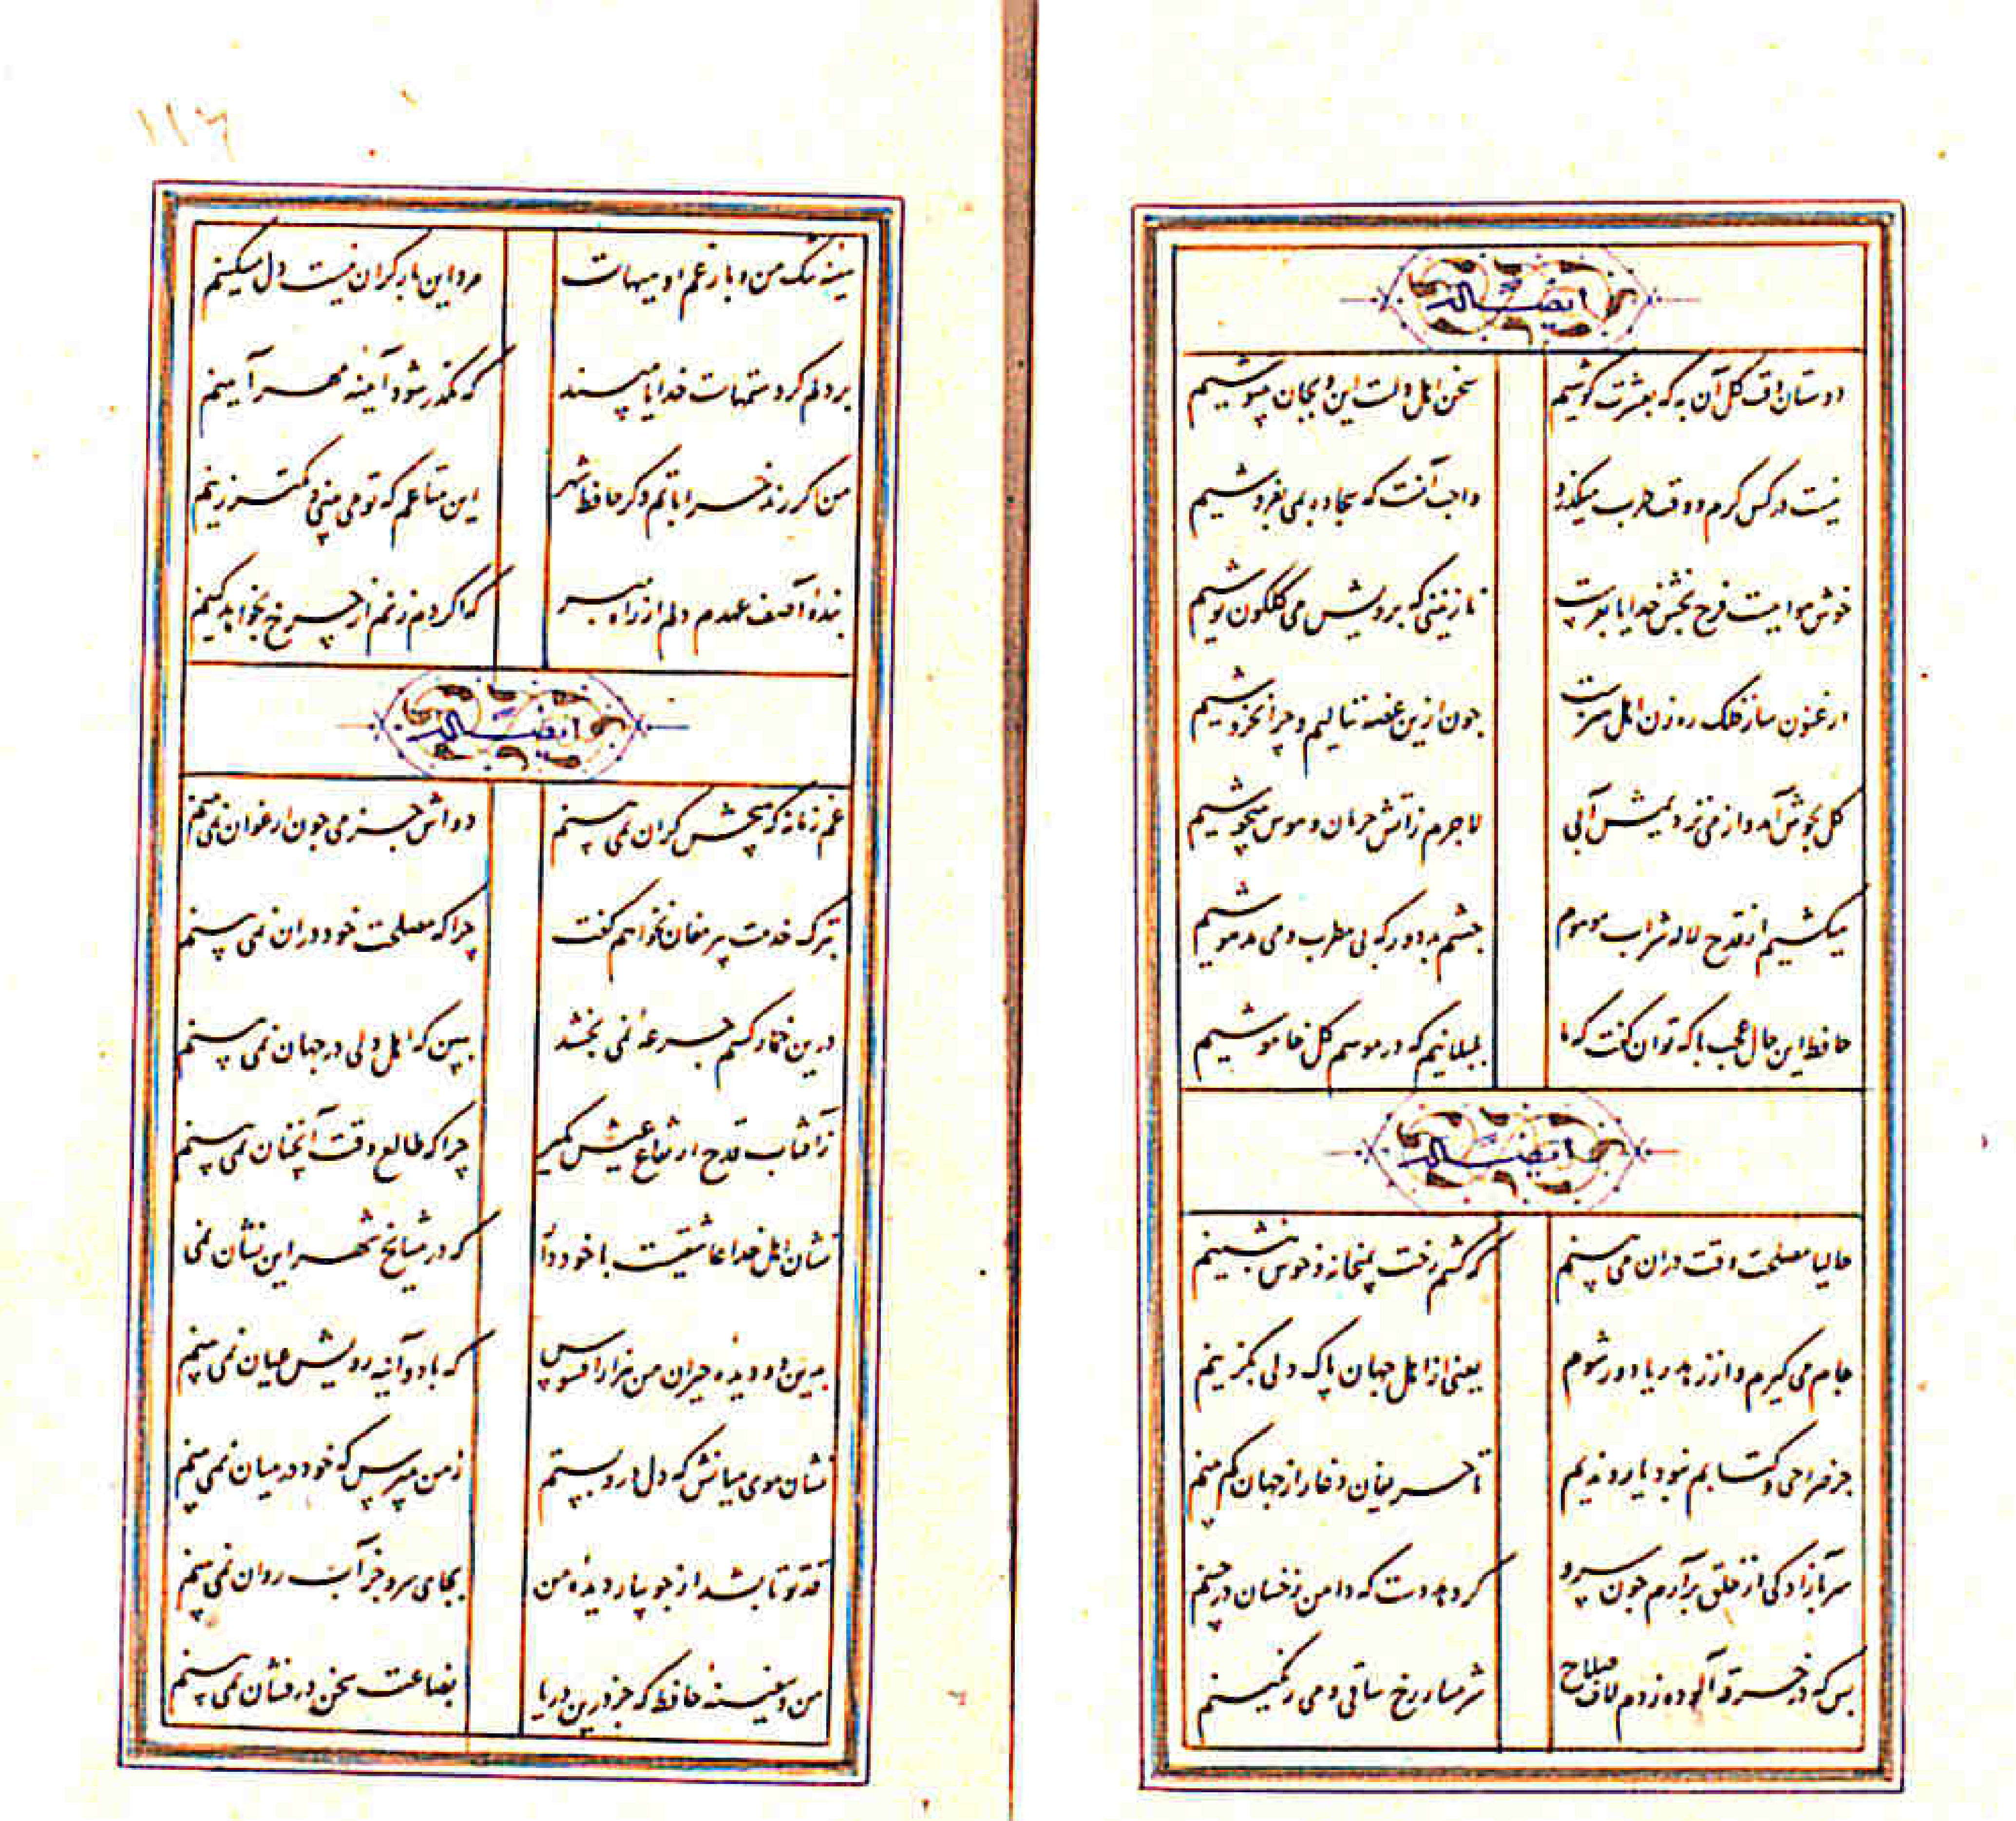 ایضاله
دوستان وقت گل آن به که بعشرت کوشیم
سخن اهل دلست این و بجان بنیوشیم
نیست در کس کرم و وقت طرب میگذرد
واجب آنست که سجاده بمی بفروشیم
خوش هواییست فرح بخش خدایا بفرست
نازنینی که برویش می گلگون نوشیم
ارغنون ساز فلک رهزن اهل هنرست
چون ازین غصه ننالیم و چرا نخروشیم
گل بجوش آمد و از می نزدیمش آبی
لاجرم زآتش حرمان و هوس میجوشیم
میکشیم از قدح لاله شراب موهوم
چشم بد دور که بی مطرب و می مدهوشیم
حافظ این حال عجب با که توان گفت که ما
بلبلانیم که در موسم گل خاموشیم
ایضاله
حالیا مصلحت وقت دران می بینم
که کشم رخت بمیخانه و خوش بنشینم
جام می گیرم و از زهد ریا دور شوم
یعنی از اهل جهان پاک دلی بگزینم
جز صراحی و کتابم نبود یار و ندیم
تا حریفان دغا را ز جهان کم بینم
سر بآزادگی از خلق برآرم چون سرو
گر دهد دست که دامن ز خسان درچینم
بس که در خرقه آلوده زدم لاف صلاح
شرمسار رخ ساقی و می رنگینم
۱۱۶
سینه تنگ من و بار غم او هیهات
مرد این بار گران نیست دل مسکینم
بر دلم گرد ستمهاست خدایا مپسند
که مکدر شود آینه مهر آیینم
من اگر رند خراباتم وگر حافظ شهر
این متاعم که تو می بینی و کمتر زینم
بنده آصف عهدم دلم از راه مبر
که اگر دم زنم از چرخ بخواهد کینم
ایضاله
غم زمانه که هیچش کران نمی بینم
دواش جز می چون ارغوان نمی بینم
بترک خدمت پیر مغان نخواهم گفت
چرا که مصلحت خود دران نمی بینم
درین خمار کسم جرعه نمی بخشد
ببین که اهل دلی در جهان نمی بینم
زآفتاب قدح ارتفاع عیش بگیر
چرا که طالع وقت آنچنان نمی بینم
نشان اهل خدا عاشقیست با خود دار
که در مشایخ شهر این نشان نمی
بدین دو دیده حیران من هزار افسوس
که با دو آینه رویش عیان نمی بینم
نشان موی میانش که دل درو بستم
ز من مپرس که خود در میان نمی بینم
قد تو تا بشد از جویبار دیده من
بجای سرو جز آب روان نمی بینم
من و سفینه حافظ که جز درین دریا
بضاعت سخن درفشان نمی بینم